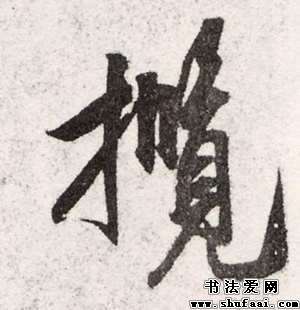 攬
书法爱网
www.shufaai.com